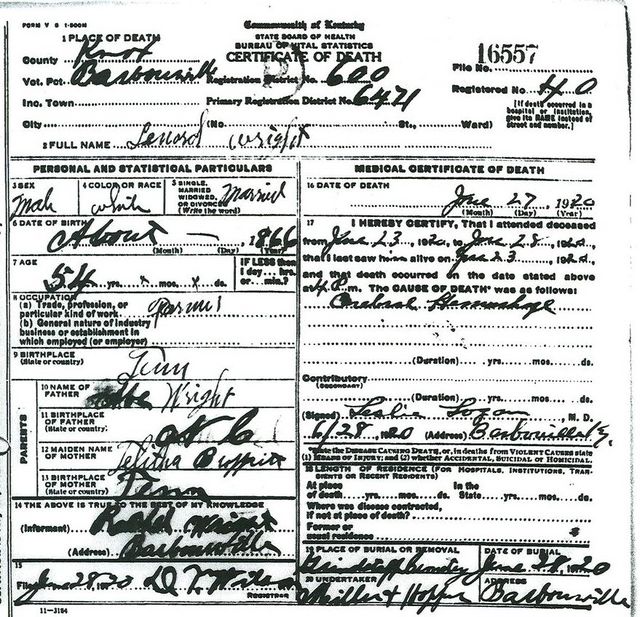 FORM V S 1-500M
Commonwealth of Kentucky
STATE BOARD OF HEALTH
BUREAU OF VITAL STATISTICS
CERTIFICATE OF DEATH
1 PLACE OF DEATH
County Knox
Vot. Pct. Barbourville Registration District No. 600
Inc. Town Primary Registration District No. 6471
City (No St., Ward)
File No. 16557
Registered No. 40
[If death occurred in a hospital or institution, give its NAME instead of street and number.]
2 FULL NAME Lenord Wright
PERSONAL AND STATISTICAL PARTICULARS
3 SEX Male
4 COLOR OR RACE White
5 SINGLE, MARRIED WIDOWED, OR DIVORCED (Write the word) Married
6 DATE OF BIRTH About — 1866
(Month) (Day) (Year)
7 AGE 54 yrs. mos. ds.
IF LESS than 1 day... hrs. or... min.?
8 OCCUPATION
(a) Trade, profession, or particular kind of work Farmer
(b) General nature of industry business or establishment in which employed (or employer)
9 BIRTHPLACE (State or country) Tenn
PARENTS
10 NAME OF FATHER Abe Wright
11 BIRTHPLACE OF FATHER (State or country) N C
12 MAIDEN NAME OF MOTHER Telitha
13 BIRTHPLACE OF MOTHER (State or country) Tenn
14 THE ABOVE IS TRUE TO THE BEST OF MY KNOWLEDGE
(Informant) Wright
(Address) Barbourville
15
Filed June 28 20 D T
REGISTRAR
11-3184
MEDICAL CERTIFICATE OF DEATH
16 DATE OF DEATH
June 27, 1920
(Month) (Day) (Year)
17 I HEREBY CERTIFY, That I attended deceased
from June 23, 1920, to June 28, 1920,
that I last saw him alive on June 23, 1920,
and that death occurred in the date stated above
at 4 P. m. The CAUSE OF DEATH* was as follows:
Cerebral Hemorrhage
(Duration) yrs. mos. ds.
Contributory
(SECONDARY)
(Duration) yrs. mos. ds.
(Signed) Leslie Logan, M. D.
6/28, 1920 (Address) Barbourville Ky
*State the DISEASE CAUSING DEATH, or, in deaths from VIOLENT CAUSES state (1) MEANS OF INJURY; and (2) whether ACCIDENTAL, SUICIDAL or HOMICIDAL.
18 LENGTH OF RESIDENCE (FOR HOSPITALS, INSTITUTIONS, TRANSIENTS OR RECENT RESIDENTS)
At place of death yrs. mos. ds. In the State yrs. mos. ds.
Where was disease contracted, if not at place of death?
Former or usual residence
19 PLACE OF BURIAL OR REMOVAL
DATE OF BURIAL
June 28, 1920
20 UNDERTAKER
ADDRESS
Hopper Barbourville